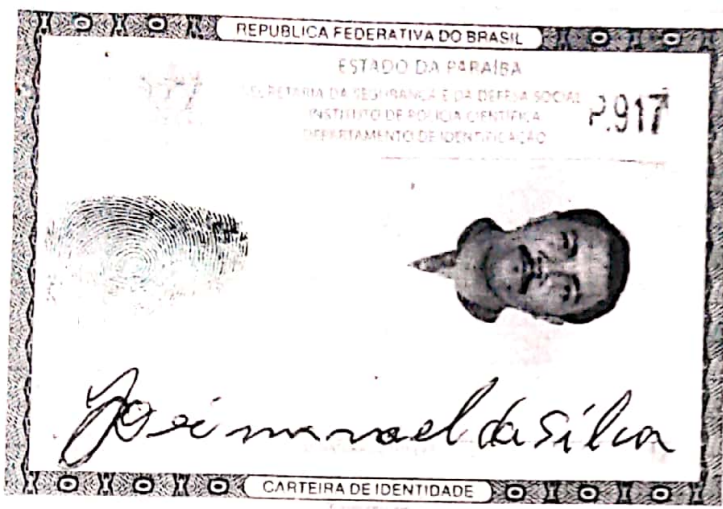 REPUBLICA FEDERATIVA DO BRASIL
ESTADO DA PARAÍBA
SECRETARIA DA SEGURANÇA E DA DEFESA SOCIAL
INSTITUTO DE POLICIA CIENTÍFICA
DEPARTAMENTO DE IDENTIFICAÇÃO
P.917
José manoel da Silva
CARTEIRA DE IDENTIDADE